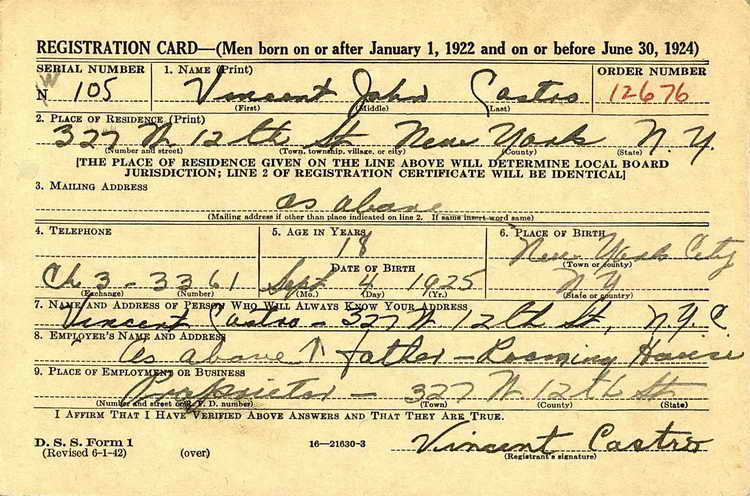 REGISTRATION CARD—(Men born on or after January 1, 1922 and on or before June 30, 1924)
SERIAL NUMBER 1. NAME (Print) ORDER NUMBER
W
N 105 Vincent John Castro 12676
(First) (Middle) (Last)
2. PLACE OF RESIDENCE (Print)
327 W. 12th St. New York N.Y.
(Number and street) (Town, township, village, or city) (County) (State)
[THE PLACE OF RESIDENCE GIVEN ON THE LINE ABOVE WILL DETERMINE LOCAL BOARD
JURISDICTION; LINE 2 OF REGISTRATION CERTIFICATE WILL BE IDENTICAL]
3. MAILING ADDRESS
as above
(Mailing address if other than place indicated on line 2. If same insert word same)
4. TELEPHONE 5. AGE IN YEARS 6. PLACE OF BIRTH
18 New York City
(Town or county)
DATE OF BIRTH
Ch 3 - 3361 Sept 4 1925 N.Y.
(Exchange) (Number) (Mo.) (Day) (Yr.) (State or country)
7. NAME AND ADDRESS OF PERSON WHO WILL ALWAYS KNOW YOUR ADDRESS
Vincent Castro - 327 W. 12th St, N.Y.C
8. EMPLOYER'S NAME AND ADDRESS
as above ↑ father - Rooming House
9. PLACE OF EMPLOYMENT OR BUSINESS
327 W 12th St
(Number and street or R. F. D. number) (Town) (County) (State)
I AFFIRM THAT I HAVE VERIFIED ABOVE ANSWERS AND THAT THEY ARE TRUE.
D. S. S. Form 1
(Revised 6-1-42) (over) 16—21630-3 Vincent Castro
(Registrant's signature)